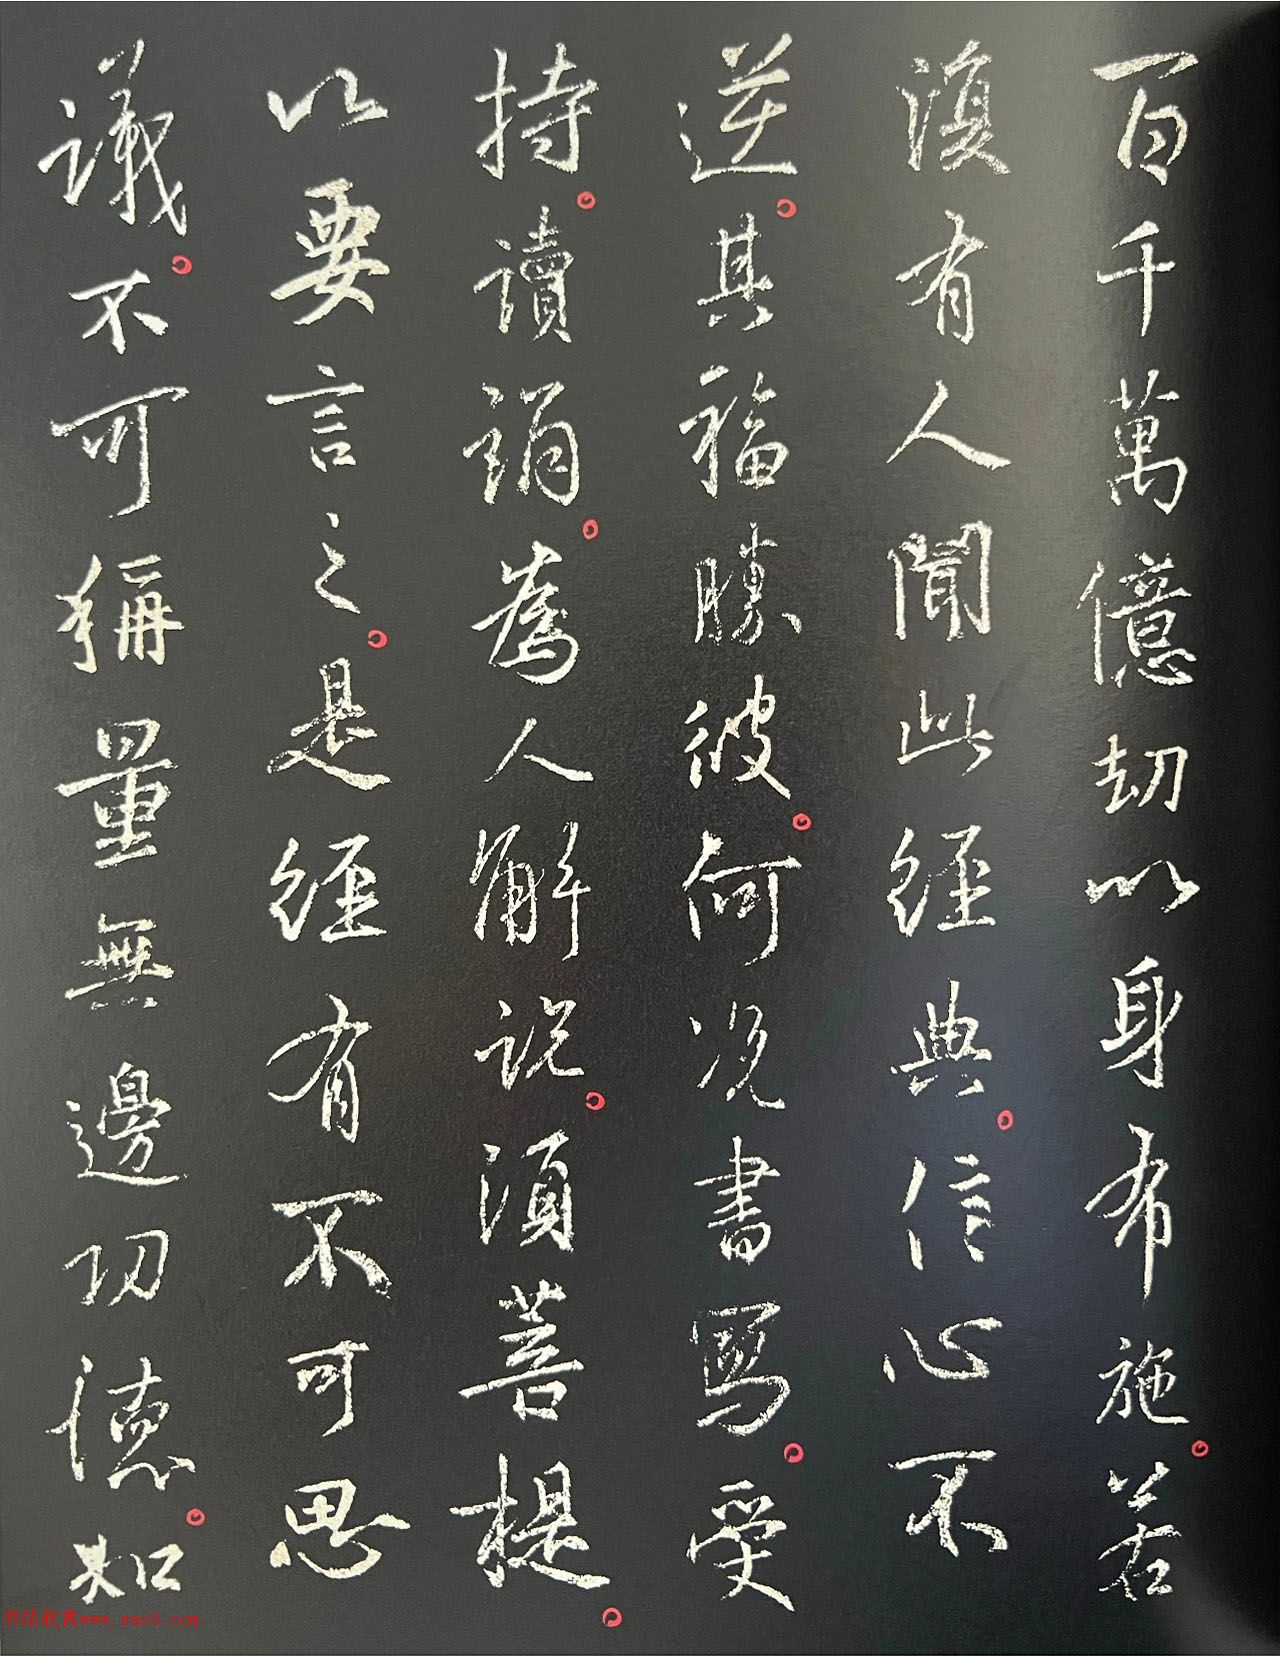 百千萬億劫以身布施。若
復有人聞此經典。信心不
逆。其福勝彼。何況書寫。受
持。讀誦。為人解說。須菩提。
以要言之。是經有不可思
議。不可稱量無邊功德。如
书法欣赏www.yac8.com